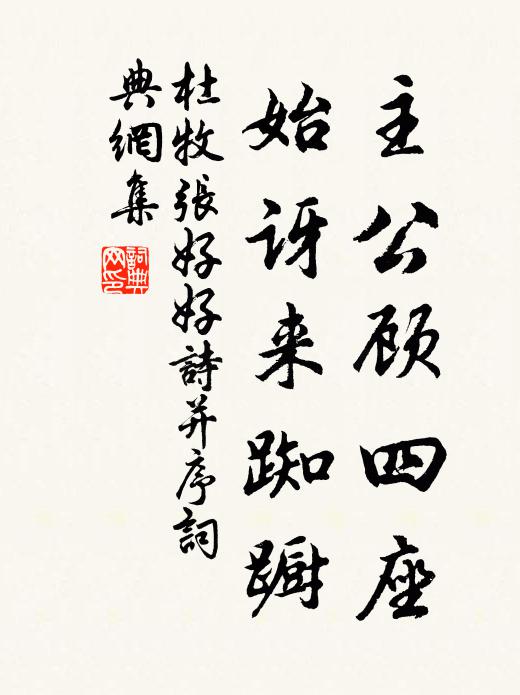 主公顾四座
始讶来踟蹰
杜牧張好好詩并序詞
典網集
詞典网印